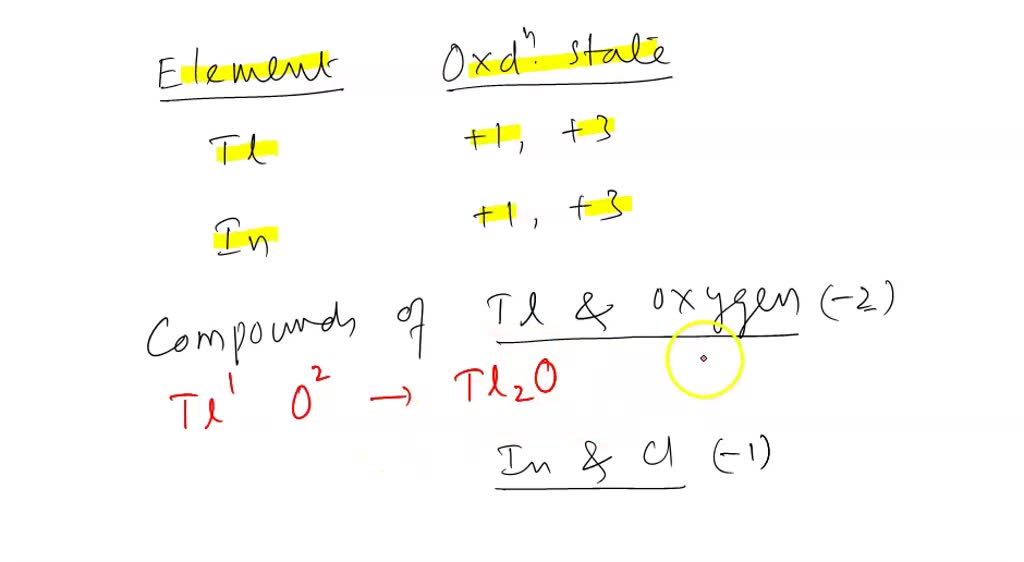 Element Oxdⁿ. state
Tl +1, +3
In +1, +3
Compounds of Tl & oxygen (-2)
Tl¹ O² → Tl₂O
In & Cl (-1)